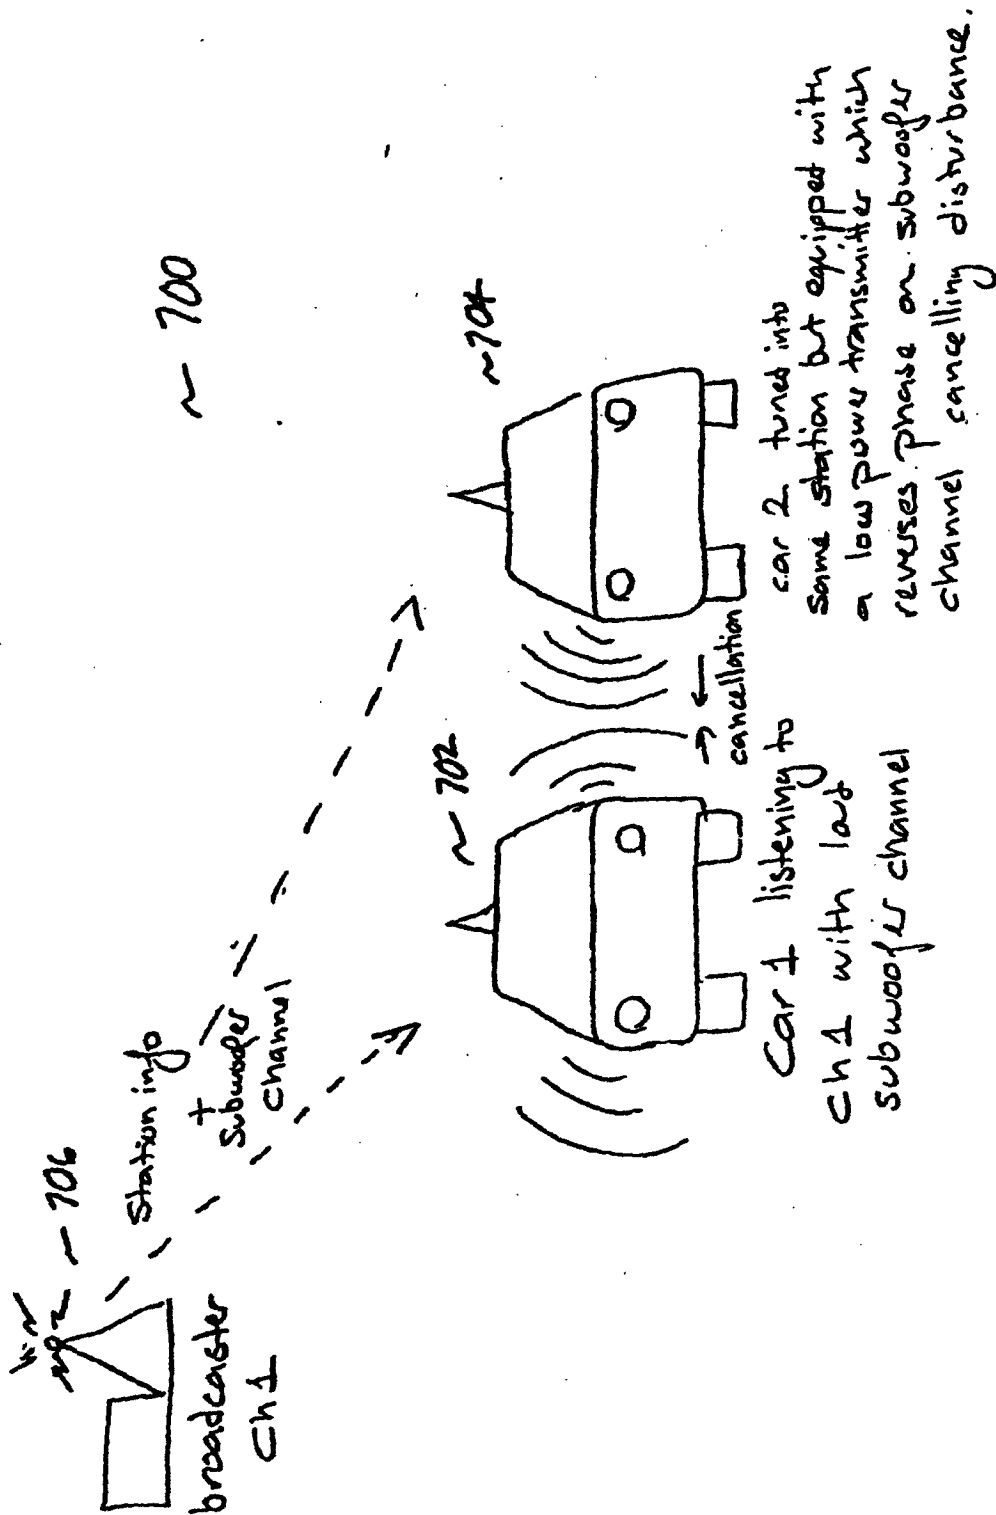 ~ 700
~ 706
Station info
+
Subwoofer
channel
broadcaster
Ch 1
~ 702
~704
→ ←
cancellation
Car 1 listening to
Ch 1 with loud
subwoofer channel
car 2 tuned into
same station but equipped with
a low power transmitter which
reverses phase on subwoofer
channel cancelling disturbance.